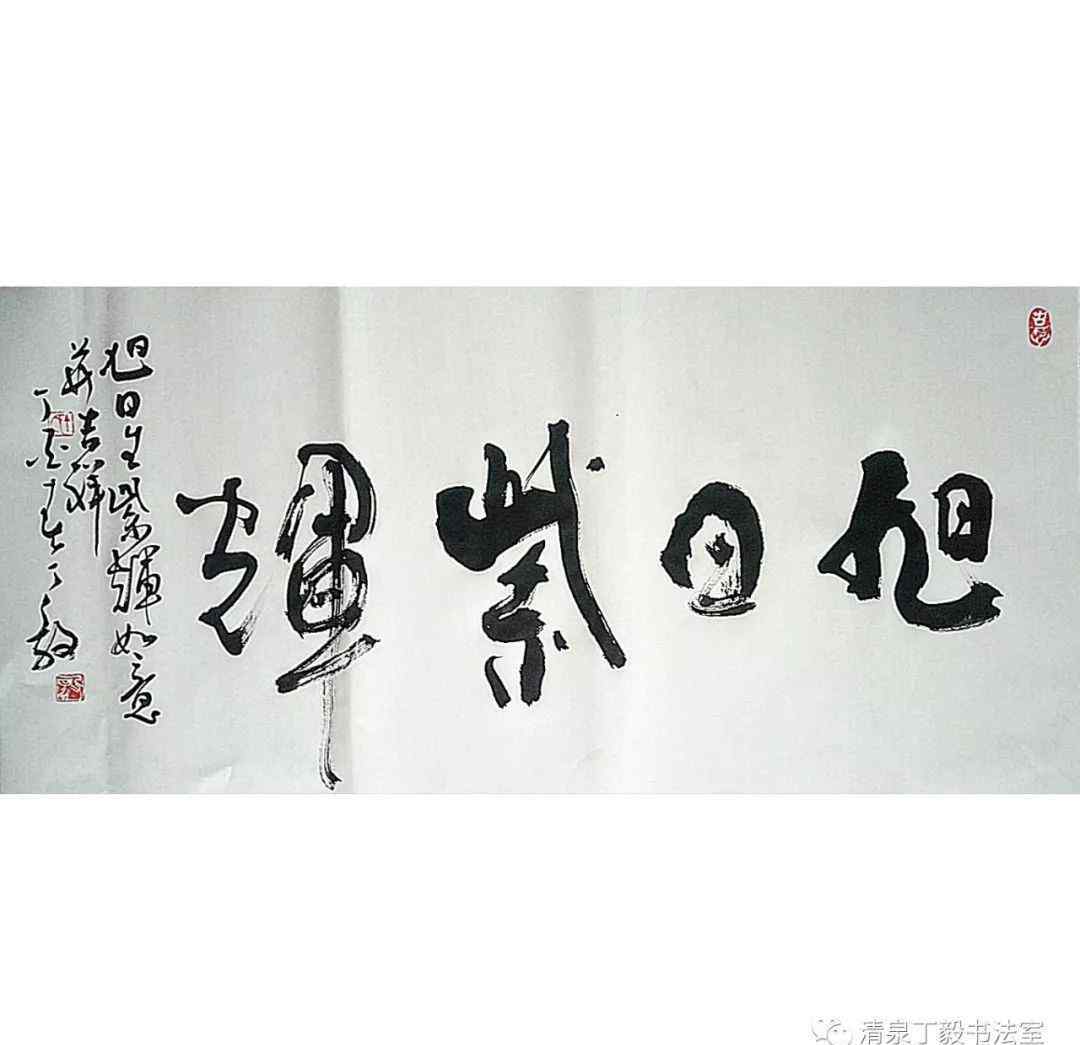 旭日紫輝
旭日生紫輝如意
并吉祥
丁酉 丁毅
清泉丁毅书法室